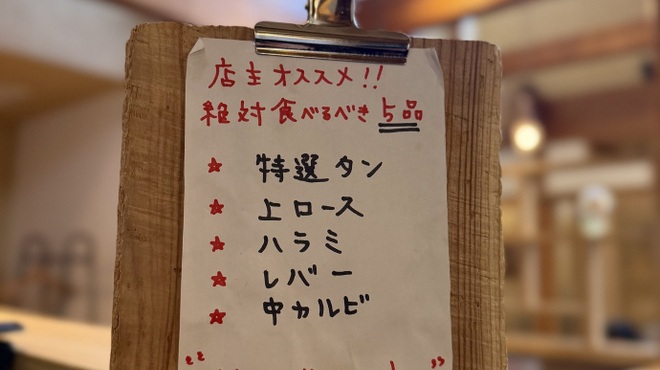 店主オススメ!!
絶対食べるべき5品
★ 特選タン
★ 上ロース
★ ハラミ
★ レバー
★ 中カルビ